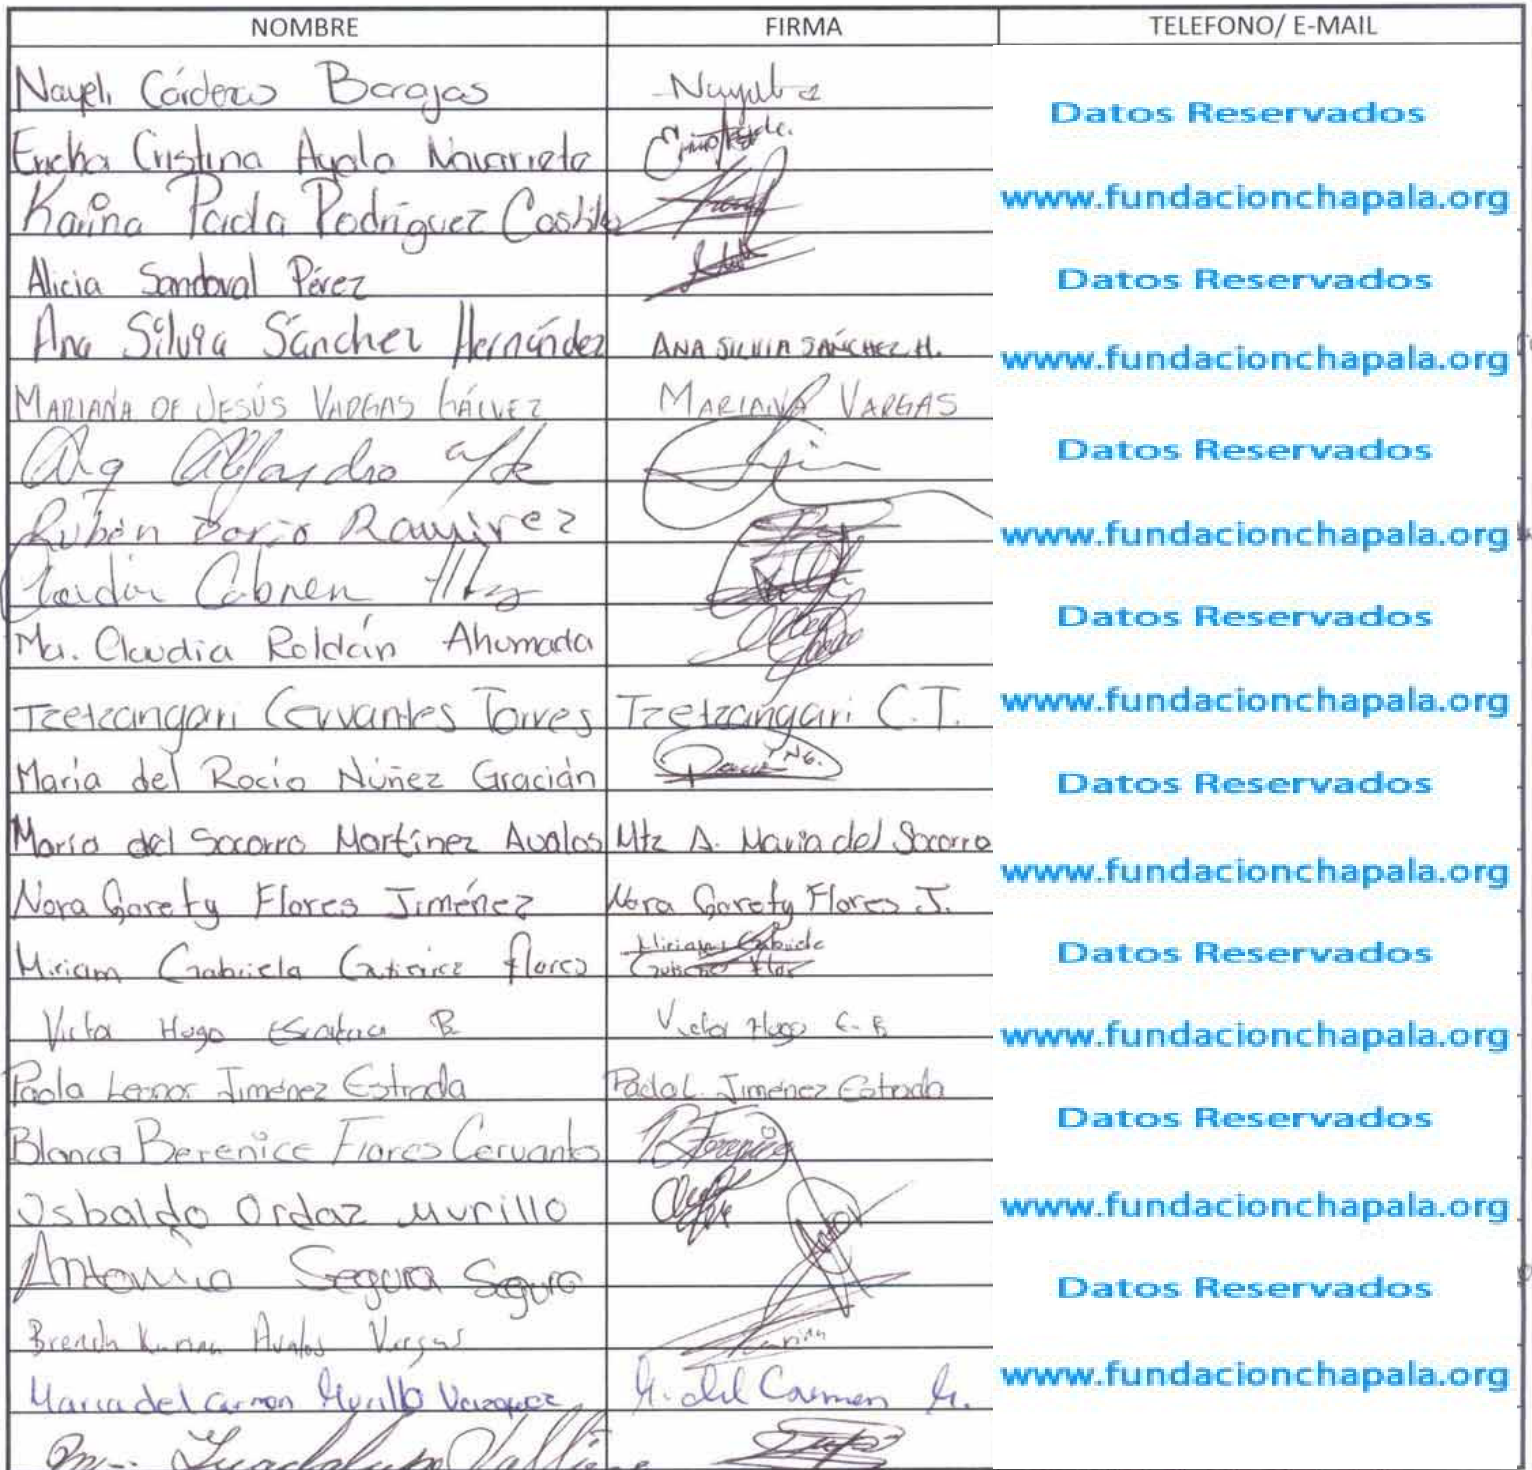 NOMBRE FIRMA TELEFONO/ E-MAIL
Nayeli Cárdenas Barajas Nayeli
Datos Reservados
Ericka Cristina Ayala Navarrete
Karina Paola Rodríguez Castillo
www.fundacionchapala.org
Alicia Sandoval Pérez
Datos Reservados
Ana Silvia Sánchez Hernández ANA SILVIA SÁNCHEZ H.
www.fundacionchapala.org
MARIANA DE JESÚS VARGAS GÁLVEZ MARIANA VARGAS
Alejandro
Datos Reservados
Rubén Darío Ramírez
www.fundacionchapala.org
Cabrera
Datos Reservados
Ma. Claudia Roldán Ahumada
Tzetzangari Cervantes Torres Tzetzangari C.T.
www.fundacionchapala.org
María del Rocío Núñez Gracián
Datos Reservados
María del Socorro Martínez Avalos Mtz A. María del Socorro
www.fundacionchapala.org
Nora Gorety Flores Jiménez Nora Gorety Flores J.
Miriam Gabriela Gutiérrez Flores Miriam Gabriela
Datos Reservados
Victor Hugo B. Victor Hugo E. B.
www.fundacionchapala.org
Paola Leonor Jiménez Estrada Paola L. Jiménez Estrada
Datos Reservados
Blanca Berenice Flores Cervantes Berenice
Osbaldo Ordaz Murillo
www.fundacionchapala.org
Antonio Segura Segura
Datos Reservados
Brenda Karina Avalos Vargas Karina
María del Carmen Murillo Vazquez M. del Carmen M.
www.fundacionchapala.org
Guadalupe